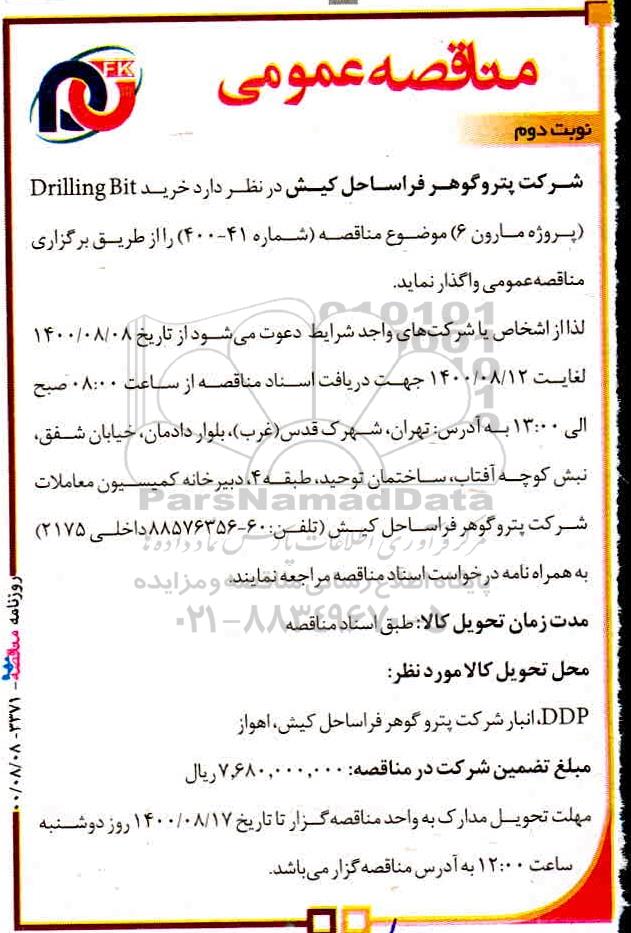 FK
مناقصه عمومی
نوبت دوم
شرکت پتروگوهر فراساحل کیش در نظر دارد خرید Drilling Bit
(پروژه مارون ۶) موضوع مناقصه (شماره ۴۱-۴۰۰) را از طریق برگزاری
مناقصه عمومی واگذار نماید.
لذا از اشخاص یا شرکت‌های واجد شرایط دعوت می‌شود از تاریخ ۱۴۰۰/۰۸/۰۸
لغایت ۱۴۰۰/۰۸/۱۲ جهت دریافت اسناد مناقصه از ساعت ۰۸:۰۰ صبح
الی ۱۳:۰۰ به آدرس: تهران، شهرک قدس(غرب)، بلوار دادمان، خیابان شفق،
نبش کوچه آفتاب، ساختمان توحید، طبقه ۴، دبیرخانه کمیسیون معاملات
شرکت پتروگوهر فراساحل کیش (تلفن: ۶۰-۸۸۵۷۶۳۵۶ داخلی ۲۱۷۵)
به همراه نامه درخواست اسناد مناقصه مراجعه نمایند.
مدت زمان تحویل کالا: طبق اسناد مناقصه
محل تحویل کالا مورد نظر:
DDP، انبار شرکت پترو گوهر فراساحل کیش، اهواز
مبلغ تضمین شرکت در مناقصه: ۷,۶۸۰,۰۰۰,۰۰۰ ریال
مهلت تحویل مدارک به واحد مناقصه‌گزار تا تاریخ ۱۴۰۰/۰۸/۱۷ روز دوشنبه
ساعت ۱۲:۰۰ به آدرس مناقصه‌گزار می‌باشد.
ParsNamadData
مرکز فرآوری اطلاعات پارس نماد داده ها
پایگاه اطلاع رسانی مناقصه و مزایده
۰۲۱-۸۸۳۴۹۶۷۰-۵
روزنامه مناقصه - ۳۳۷۱- ۰۰/۰۸/۰۸